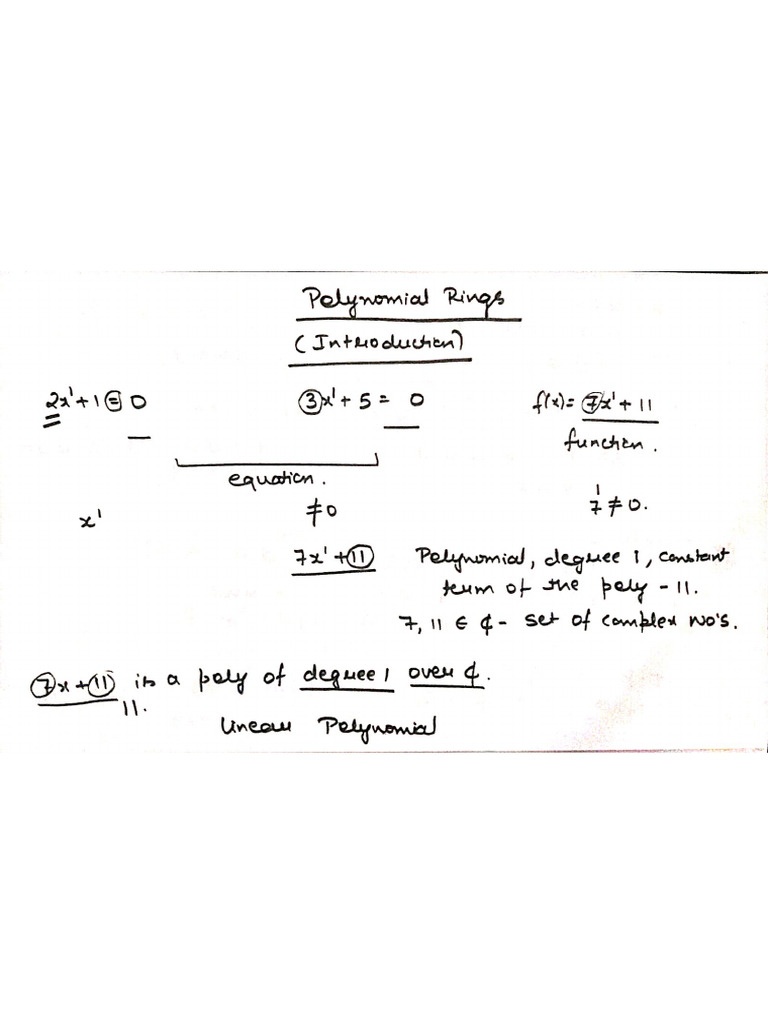 Polynomial Rings
(Introduction)
2x¹+1=0 3x¹+5=0 f(x)=7x¹+11
function.
equation.
x¹ ≠0 7¹≠0.
7x¹+11 Polynomial, degree 1, constant
term of the poly - 11.
7, 11 ∈ ₵ - set of complex no's.
7x+11 is a poly of degree 1 over ₵.
11.
Linear Polynomial